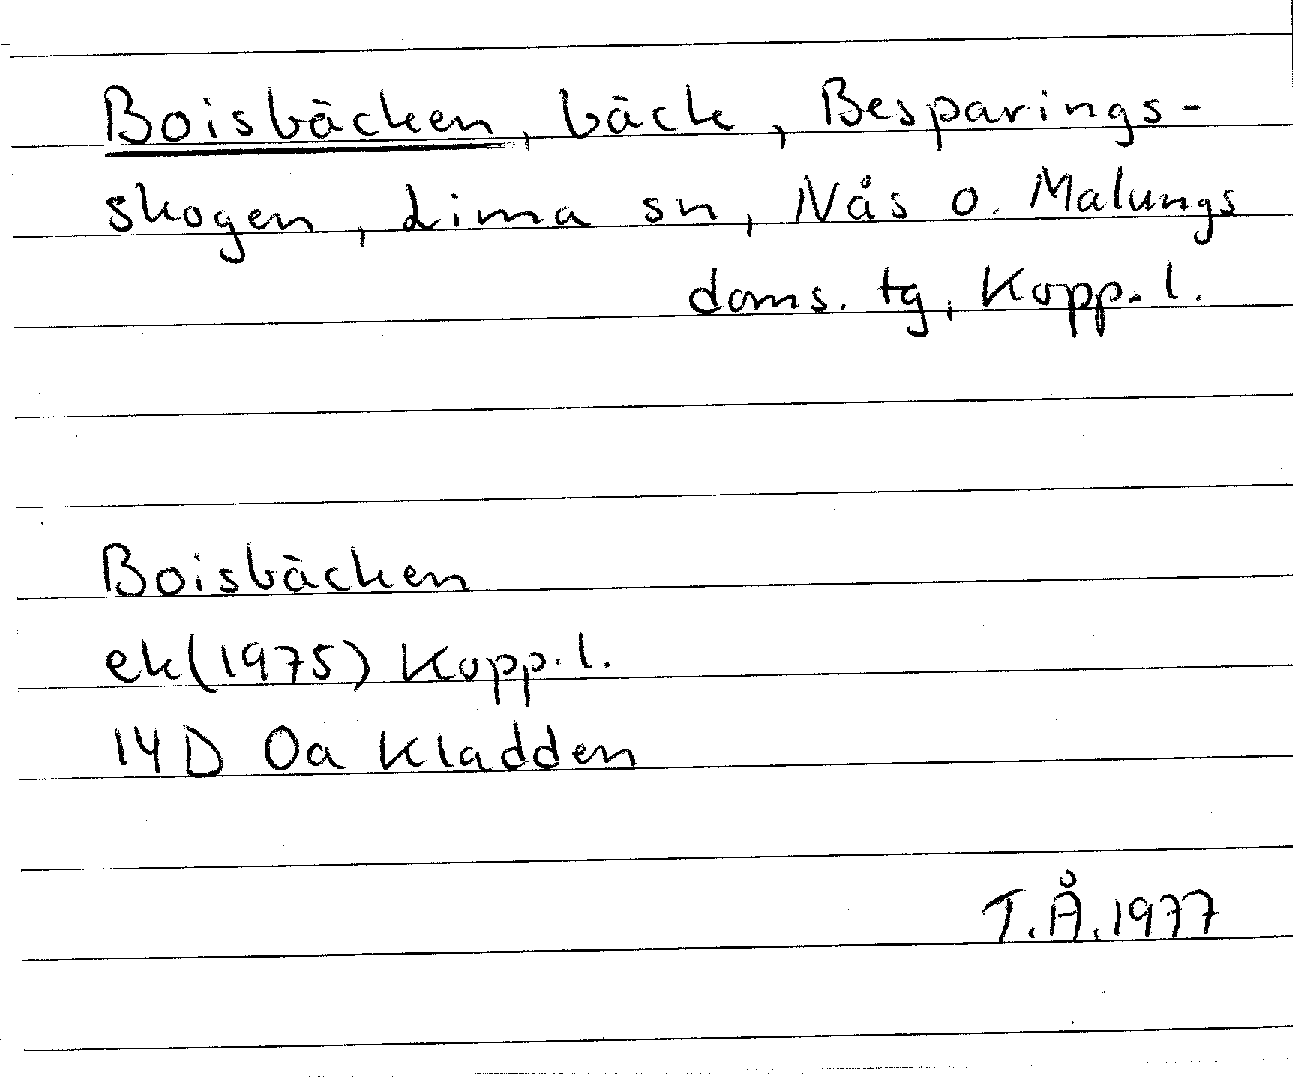 Boisbäcken, bäck, Besparings-
skogen, Lima sn, Nås o. Malungs
doms. tg, Kopp. l.
Boisbäcken
ek(1975) Kopp. l.
14D 0a Kladden
T.Å.1977